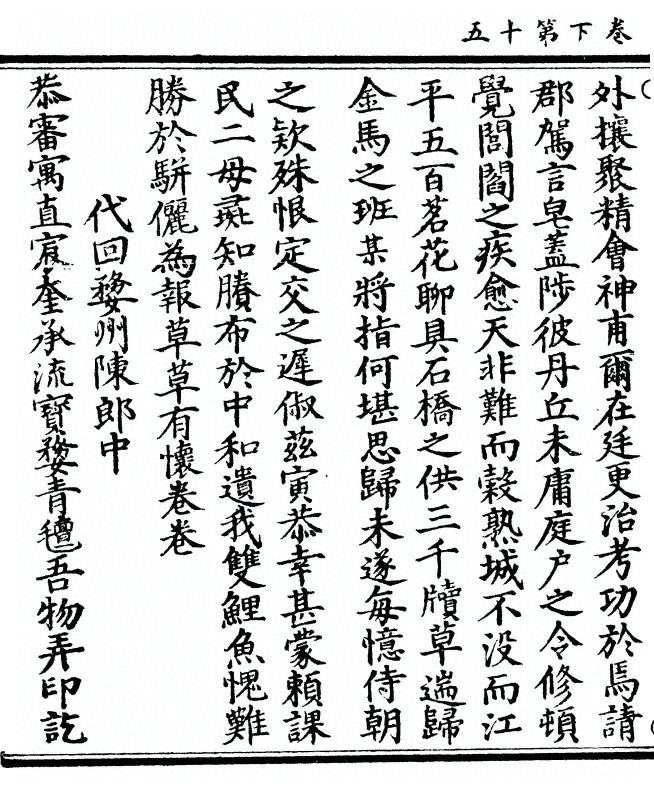 五十第下卷
外攘聚精會神甫爾在廷更治考功於焉請
郡駕言皂蓋陟彼丹丘未庸庭户之令修頓
覺閭閻之疾愈天非難而穀熟城不没而江
平五百茗花聊具石橋之供三千牘草遄歸
金馬之班某將指何堪思歸未遂每憶侍朝
之欵殊恨定交之遲俶兹寅恭幸甚蒙賴課
民二母蕋知賸布於中和遺我雙鯉魚愧難
勝於駢儷為報草草有懷卷卷
代回婺州陳郎中
恭審寓直宸奎承流寳婺青氊吾物弄印訖